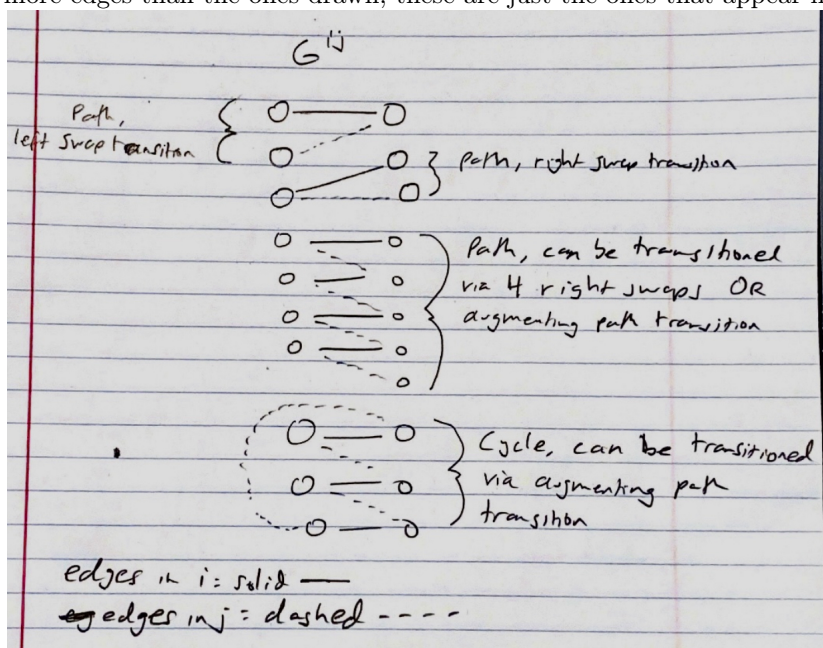 more edges than the ones drawn, these are just the ones that appear
G^ij
Path,
left swap transition
path, right swap transition
Path, can be transitioned
via 4 right swaps OR
augmenting path transition
Cycle, can be transitioned
via augmenting path
transition
edges in i: solid
edges in j: dashed